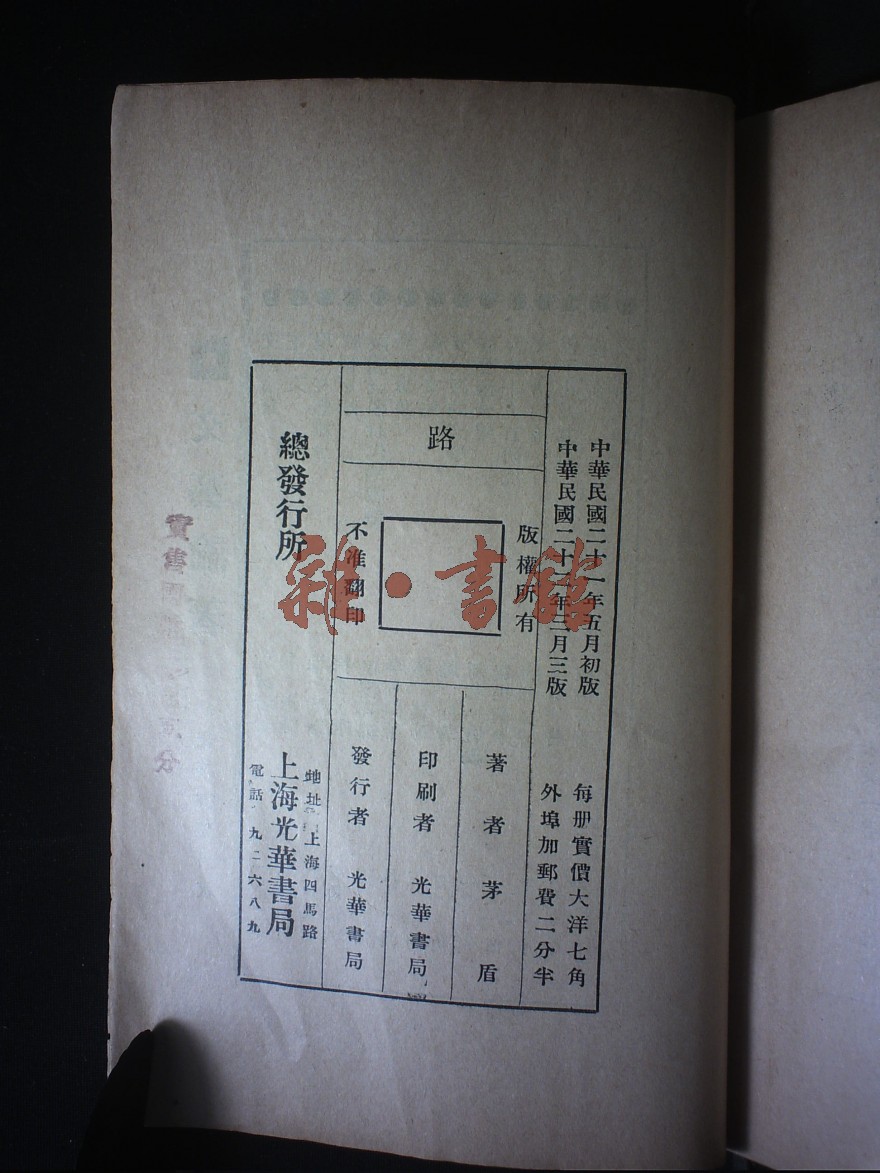 中華民國二十一年五月初版
中華民國二十二年三月三版
每册實價大洋七角
外埠加郵費二分半
路
版權所有
不准翻印
著者 茅盾
印刷者 光華書局
發行者 光華書局
總發行所
地址 上海四馬路
上海光華書局
電話 九二六八九
雜·書館
實售
分